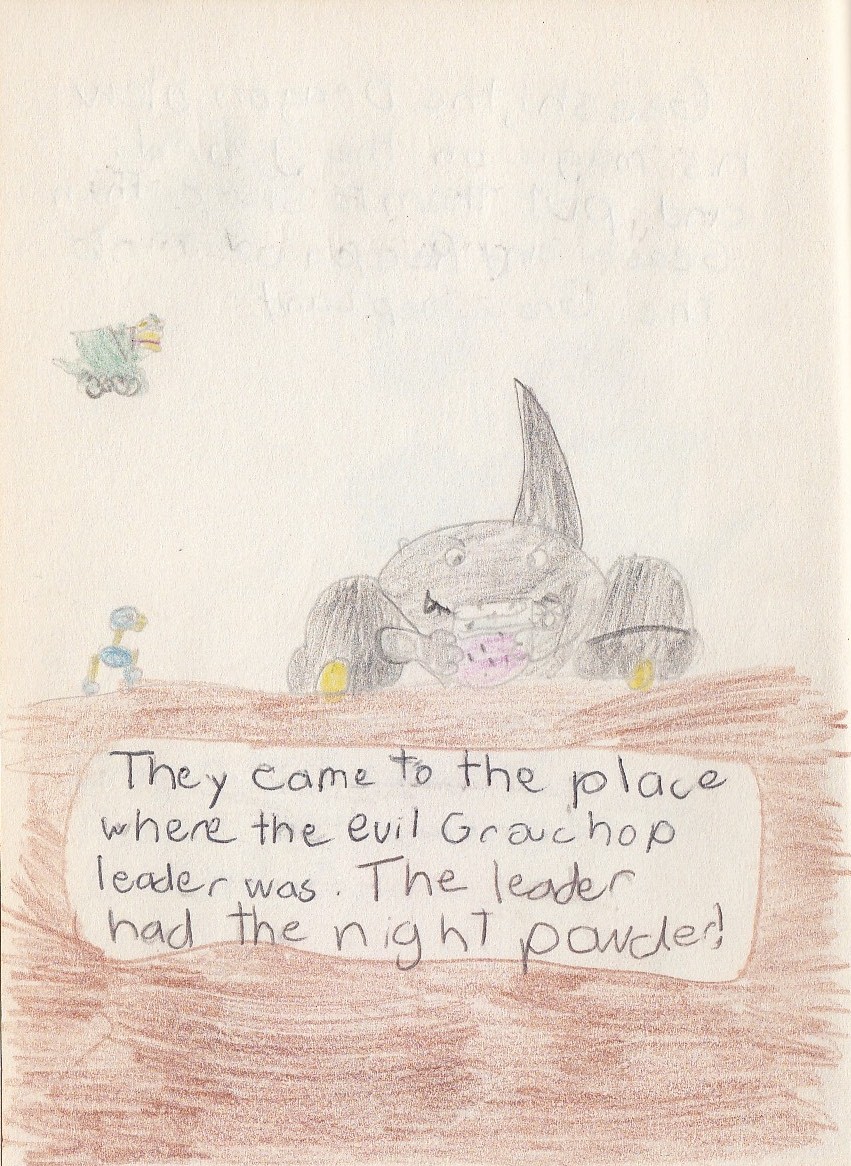 They came to the place
where the evil Grouchop
leader was. The leader
had the night powder!